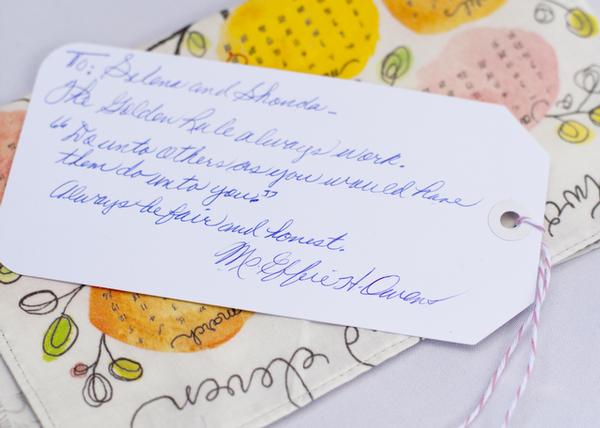 To: Salena and Shonda-
The Golden Rule always work.
"Do unto others as you would have
them do unto you."
Always be fair and honest.
Mc Effie H. Owens
march
eleven